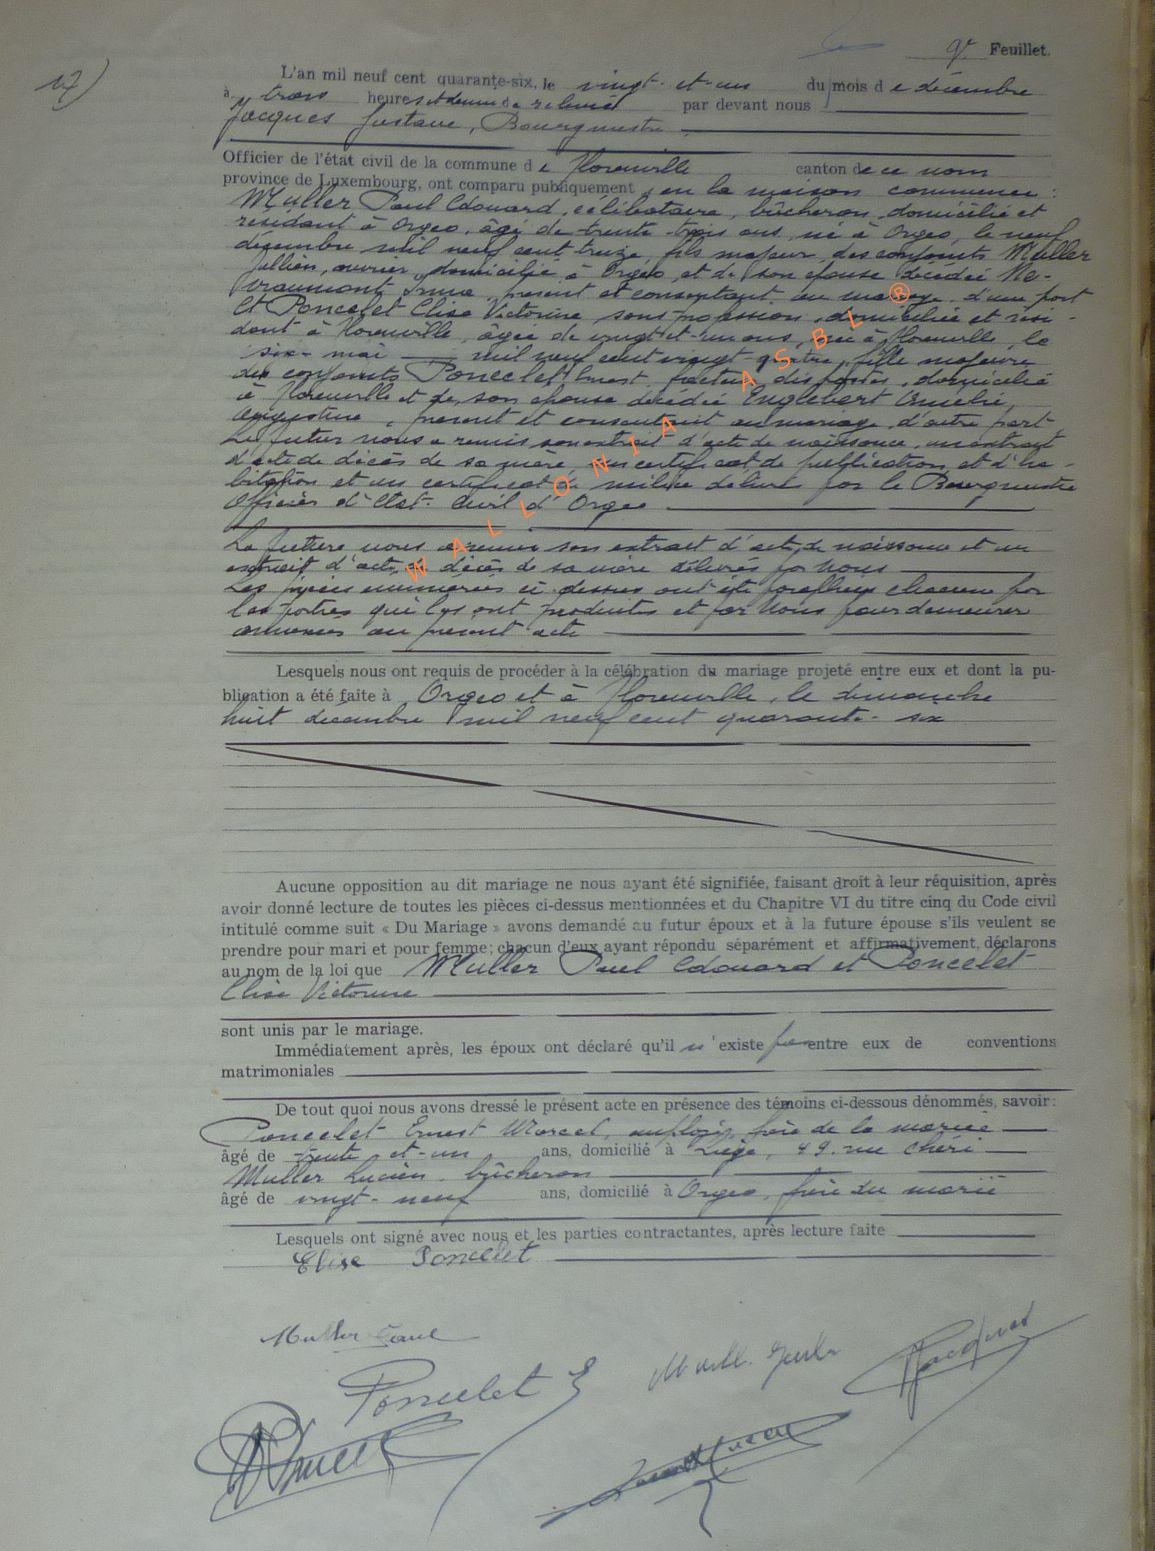 17)
9e Feuillet.
L'an mil neuf cent quarante-six, le vingt-et-un du mois d e décembre
à trois heures et demie de relevée par devant nous
Jacques Gustave, Bourgmestre
Officier de l'état civil de la commune d e Florenville canton de ce nom
province de Luxembourg, ont comparu publiquement en la maison commune :
Muller Paul Edouard, célibataire, bûcheron, domicilié et
résidant à Orgeo, âgé de trente-trois ans, né à Orgeo, le neuf
décembre mil neuf cent treize, fils majeur des conjoints Muller
Jullien, ouvrier, domicilié à Orgeo et de son épouse décédée
Irma, présent et consentant au mariage, d'une part
Et Poncelet Elise Victorine, sans profession, domiciliée et rési-
dant à Florenville, âgée de vingt-et-un ans, née à Florenville, le
six mai mil neuf cent vingt-quatre, fille majeure
des conjoints Poncelet Ernest, facteur des postes, domicilié
à Florenville et de son épouse décédée Englebert Amélie
Augustine, présent et consentant au mariage, d'autre part
Le futur nous a remis son extrait d'acte de naissance, un extrait
d'acte de décès de sa mère, un certificat de publication et d'ha-
bitation et un certificat de milice délivré par le Bourgmestre
Officier d'Etat-Civil d'Orgeo
La future nous a remis son extrait d'acte de naissance et un
extrait d'acte de décès de sa mère délivrés par Nous
Les pièces énumérées ci-dessus ont été paraphées chacune par
les parties qui les ont produites et par Nous pour demeurer
annexées au présent acte
Lesquels nous ont requis de procéder à la célébration du mariage projeté entre eux et dont la pu-
blication a été faite à Orgeo et à Florenville, le dimanche
huit décembre mil neuf cent quarante-six
Aucune opposition au dit mariage ne nous ayant été signifiée, faisant droit à leur réquisition, après
avoir donné lecture de toutes les pièces ci-dessus mentionnées et du Chapitre VI du titre cinq du Code civil
intitulé comme suit « Du Mariage » avons demandé au futur époux et à la future épouse s'ils veulent se
prendre pour mari et pour femme; chacun d'eux ayant répondu séparément et affirmativement, déclarons
au nom de la loi que Muller Paul Edouard et Poncelet
Elise Victorine
sont unis par le mariage.
Immédiatement après, les époux ont déclaré qu'il n'existe pas entre eux de conventions
matrimoniales
De tout quoi nous avons dressé le présent acte en présence des témoins ci-dessous dénommés, savoir:
Poncelet Ernest Marcel, employé, frère de la mariée
âgé de trente-et-un ans, domicilié à Liège, 49, rue Chéri
Muller Lucien, bûcheron
âgé de vingt-neuf ans, domicilié à Orgeo, frère du marié
Lesquels ont signé avec nous et les parties contractantes, après lecture faite
Elise Poncelet
Muller Paul
Poncelet E
WALLONIA ASBL ®